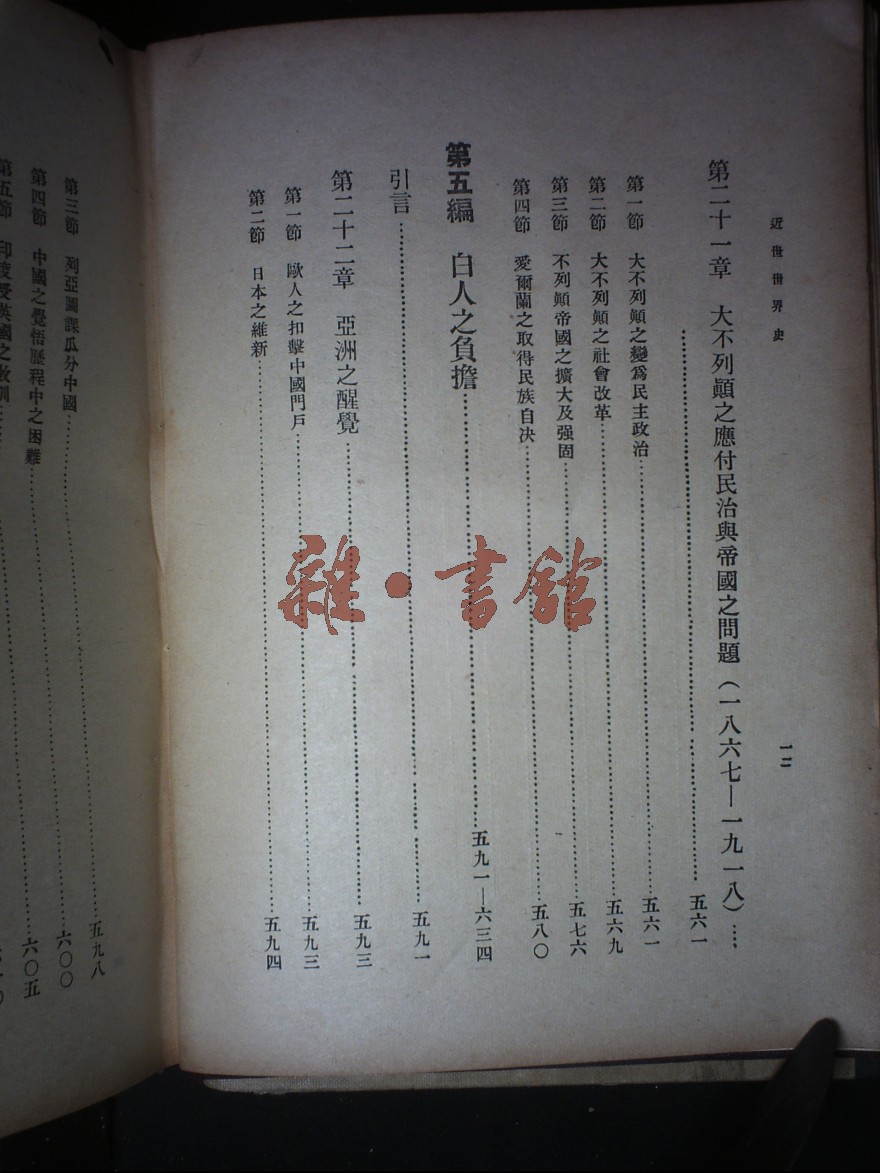 近世世界史
一二
第二十一章 大不列顛之應付民治與帝國之問題（一八六七—一九一八）……
……五六一
第一節 大不列顛之變爲民主政治……五六一
第二節 大不列顛之社會改革……五六九
第三節 不列顛帝國之擴大及强固……五七六
第四節 愛爾蘭之取得民族自决……五八〇
第五編 白人之負擔……五九一—六三四
引言……五九一
第二十二章 亞洲之醒覺……五九三
第一節 歐人之扣擊中國門戶……五九三
第二節 日本之維新……五九四
第三節 列亞圖謀瓜分中國……五九八
第四節 中國之覺悟歷程中之困難……六〇〇
第五節 印度受英國之教訓……六〇五
雜·書館